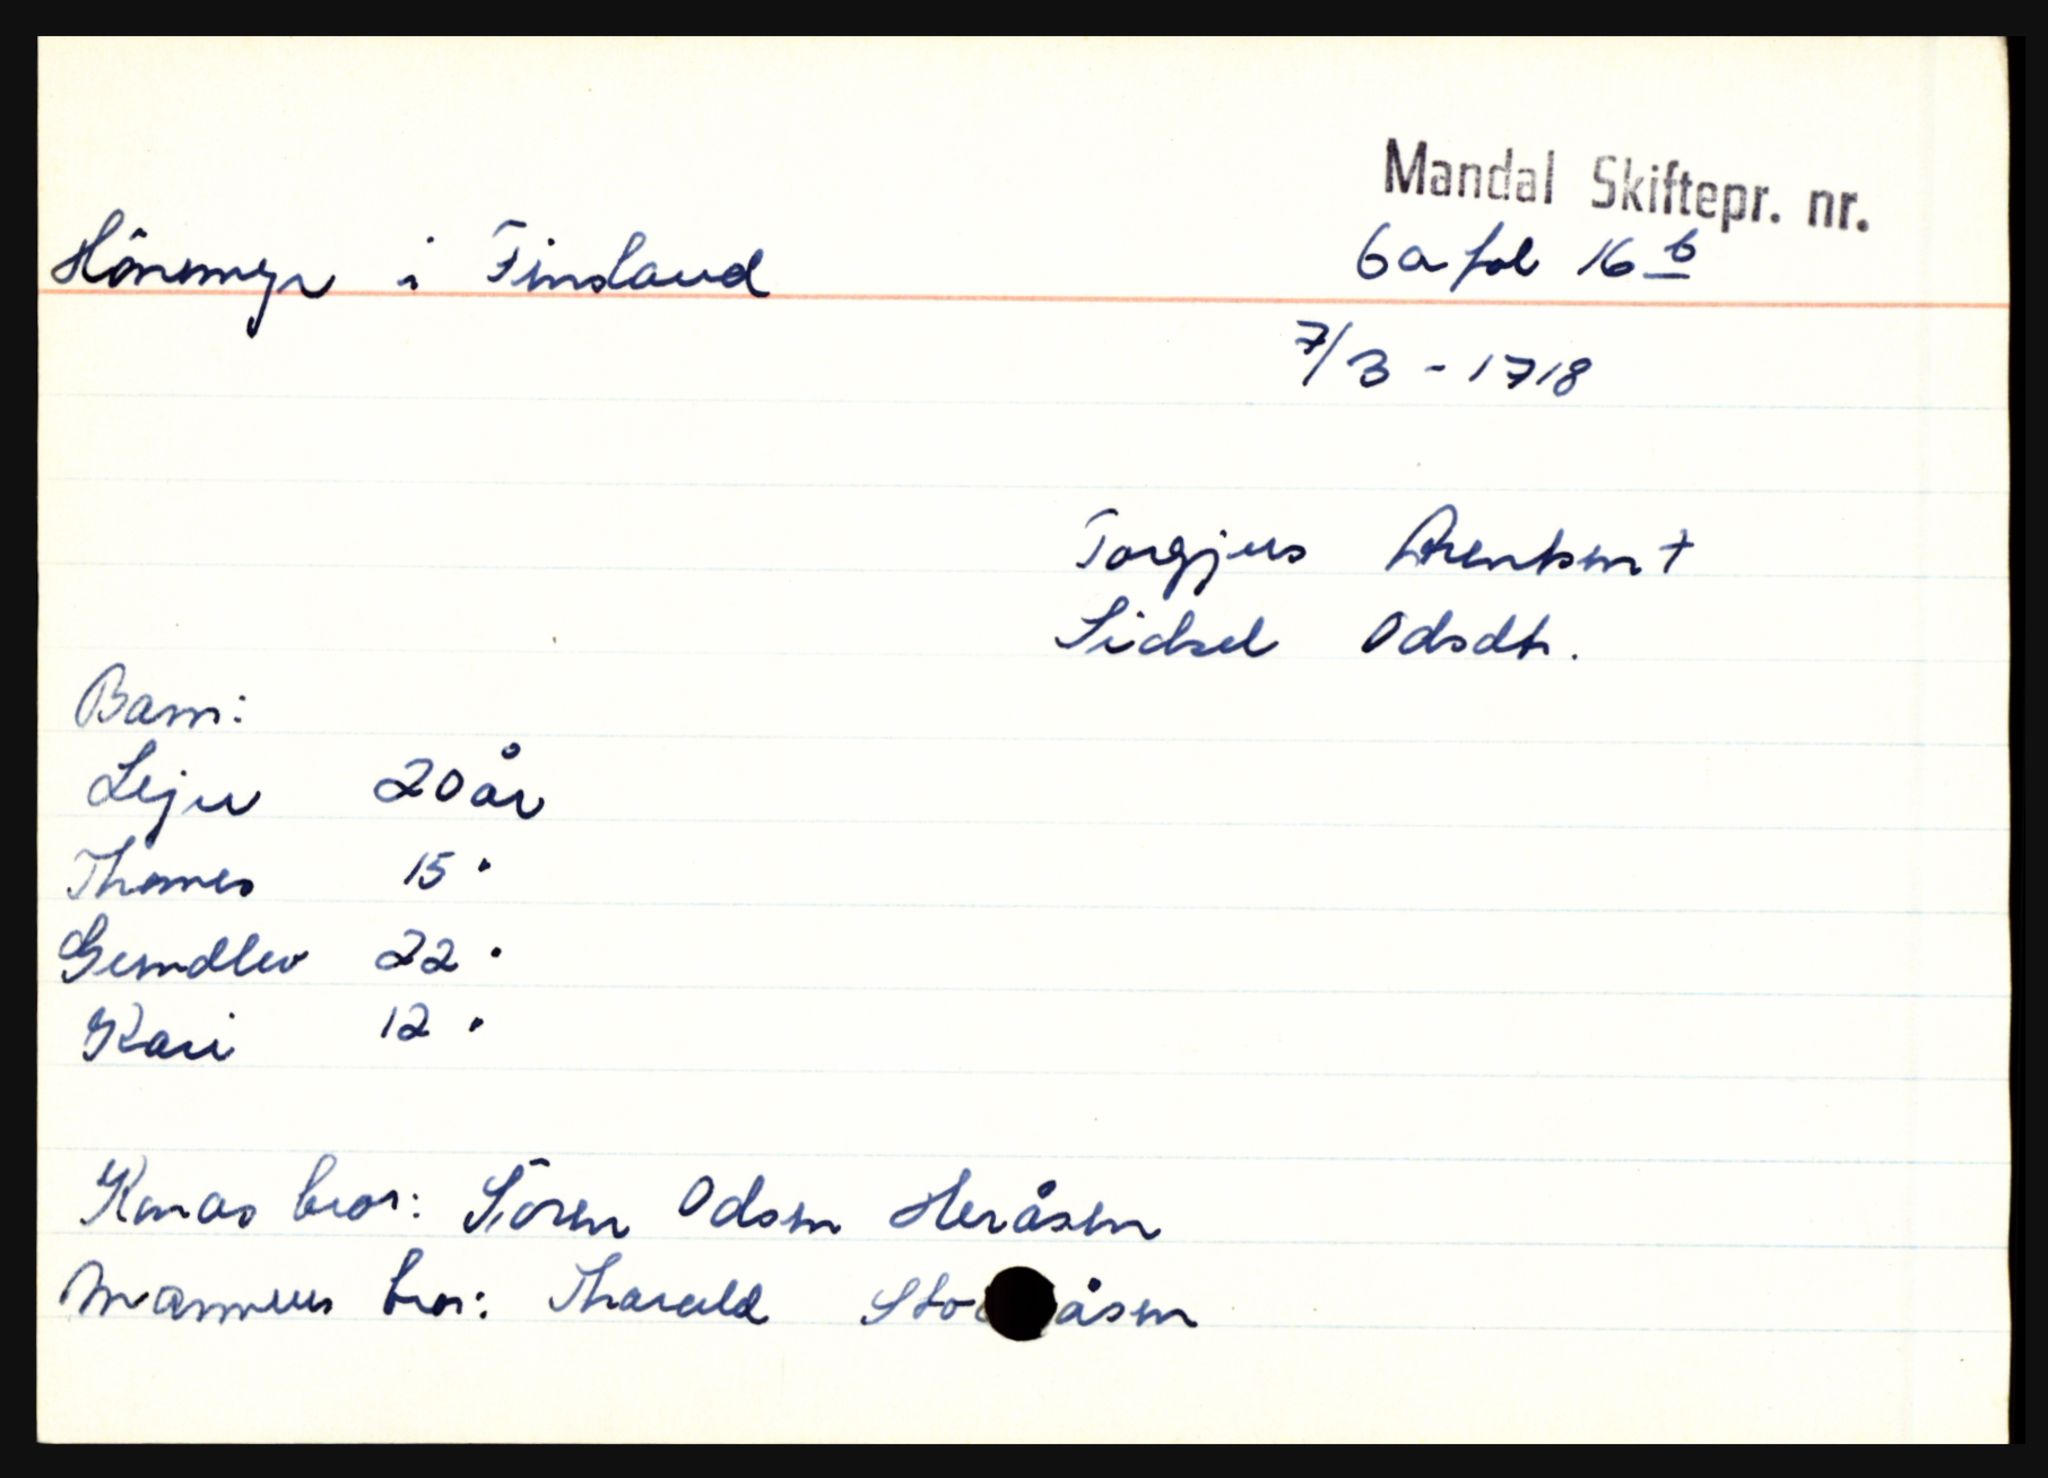 Mandal Skiftepr. nr.
Hönemyr i Finsland 6a fol 16 b
7/3 - 1718
Torgjus Arentsen +
Sidsel Odsdtr.
Barn:
20 år
Thomes 15 "
Gundlev 22 "
Kari 12 "
Konas bror: Sören Odsen Heråsen
Mannens bror: Tharald